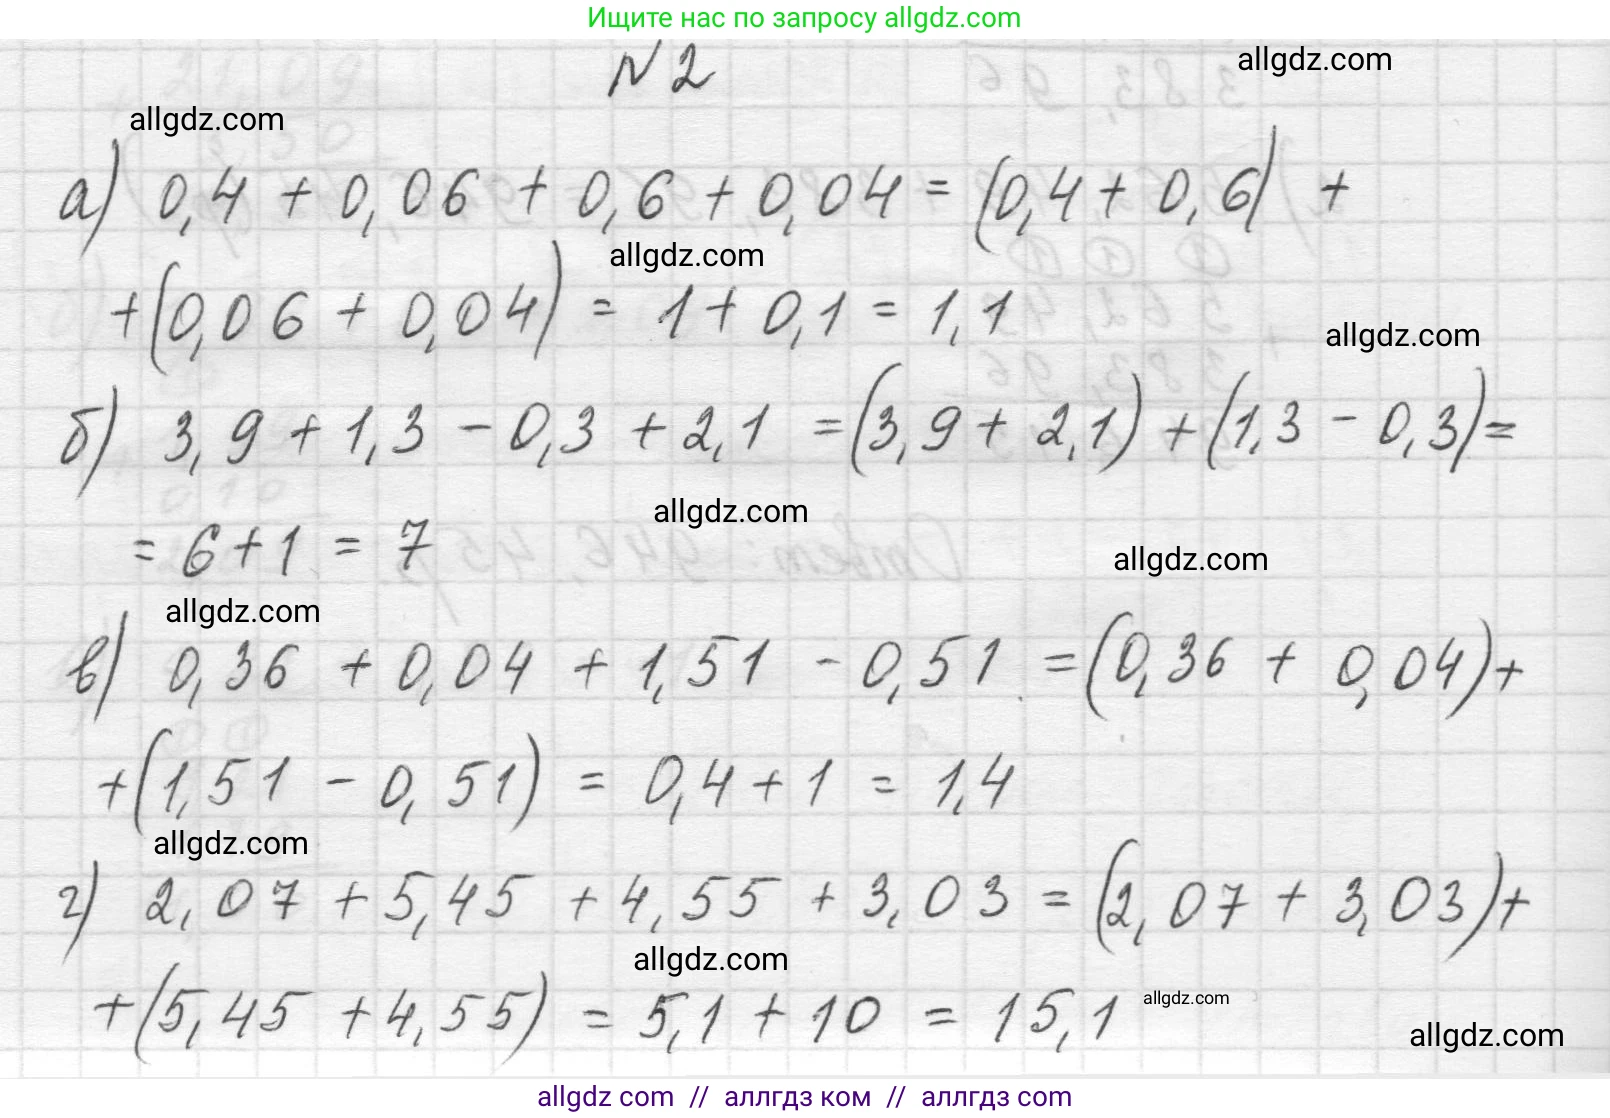 Ищите нас по запросу allgdz.com
N 2
allgdz.com
allgdz.com
а) 0,4 + 0,06 + 0,6 + 0,04 = (0,4 + 0,6) +
allgdz.com
+ (0,06 + 0,04) = 1 + 0,1 = 1,1
allgdz.com
б) 3,9 + 1,3 - 0,3 + 2,1 = (3,9 + 2,1) + (1,3 - 0,3) =
allgdz.com
= 6 + 1 = 7
allgdz.com
allgdz.com
в) 0,36 + 0,04 + 1,51 - 0,51 = (0,36 + 0,04) +
+ (1,51 - 0,51) = 0,4 + 1 = 1,4
allgdz.com
г) 2,07 + 5,45 + 4,55 + 3,03 = (2,07 + 3,03) +
allgdz.com
+ (5,45 + 4,55) = 5,1 + 10 = 15,1
allgdz.com
allgdz.com
allgdz com // аллгдз ком // аллгдз com